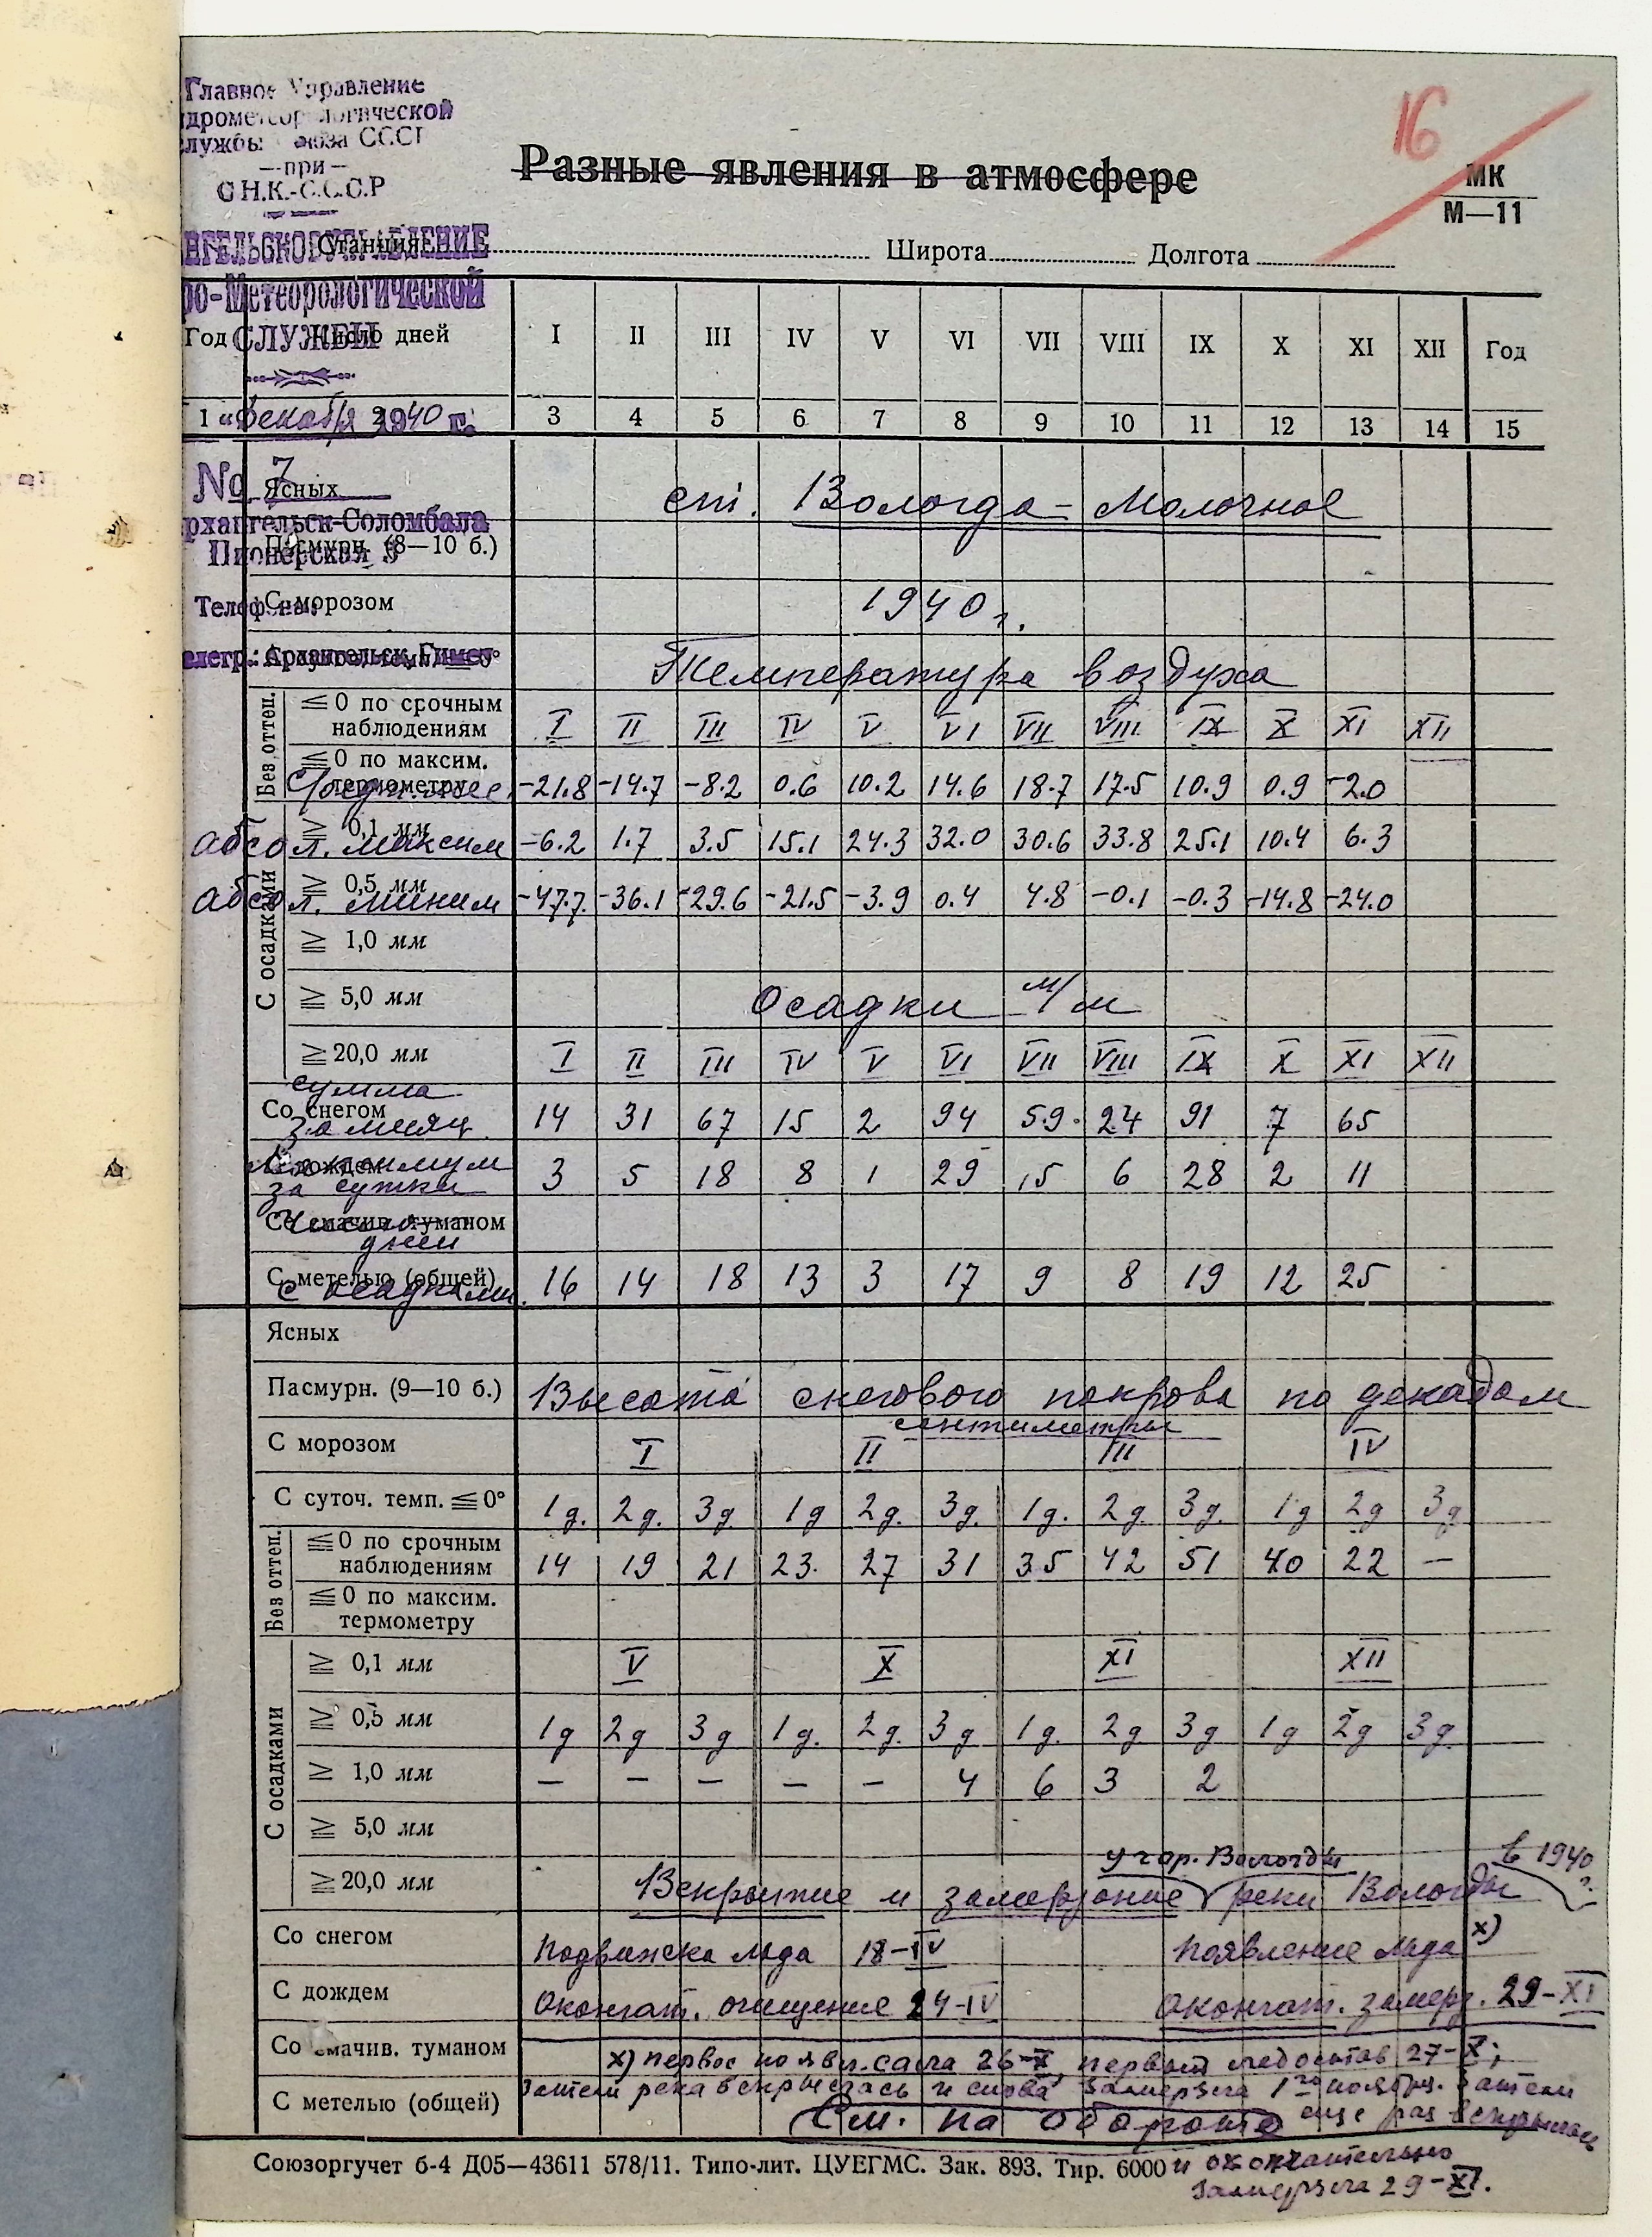 Главное Управление
Гидрометеорологической
Службы Союза СССР
—при—
С.Н.К.-С.С.С.Р
16
Разные явления в атмосфере
МК
М—11
АРХАНГЕЛЬСКОЕ УПРАВЛЕНИЕ
Станция Широта Долгота
Гидро-Метеорологической
СЛУЖБЫ
Год Число дней I II III IV V VI VII VIII IX X XI XII Год
1 2 3 4 5 6 7 8 9 10 11 12 13 14 15
„ декабря 1940 г.
№ 7
Ясных
ст. Вологда - Молочное
Архангельск-Соломбала
Пасмурн. (8—10 б.)
Пионерская 3
Телефон
С морозом
1940 г.
Телегр.: Архангельск Гимет
Температура воздуха
Без оттеп.
≦ 0 по срочным наблюдениям
I II III IV V VI VII VIII IX X XI XII
≦ 0 по максим. термометру
Среднее -21.8 -14.7 -8.2 0.6 10.2 14.6 18.7 17.5 10.9 0.9 -2.0
С осадками
≧ 0,1 мм
абсол. максим -6.2 1.7 3.5 15.1 24.3 32.0 30.6 33.8 25.1 10.4 6.3
≧ 0,5 мм
абсол. миним -47.7 -36.1 -29.6 -21.5 -3.9 0.4 4.8 -0.1 -0.3 -14.8 -24.0
≧ 1,0 мм
≧ 5,0 мм
Осадки м/м
≧ 20,0 мм
I II III IV V VI VII VIII IX X XI XII
Со снегом
сумма за месяц 14 31 67 15 2 94 59. 24 91 7 65
С дождем
Максимум за сутки 3 5 18 8 1 29 15 6 28 2 11
Со смачив. туманом
Число дней
С метелью (общей)
с осадками 16 14 18 13 3 17 9 8 19 12 25
Ясных
Пасмурн. (9—10 б.)
Высота снегового покрова по декадам
сантиметры
С морозом
I II III IV
С суточ. темп. ≦ 0°
1д. 2д. 3д. 1д 2д. 3д. 1д. 2д 3д. 1д 2д 3д
Без оттеп.
≦ 0 по срочным наблюдениям
14 19 21 23. 27 31 35 42 51 40 22 —
≦ 0 по максим. термометру
С осадками
≧ 0,1 мм
V X XI XII
≧ 0,5 мм
1д 2д 3д 1д. 2д. 3д 1д. 2д 3д 1д 2д 3д.
≧ 1,0 мм
— — — — — 4 6 3 2
≧ 5,0 мм
≧ 20,0 мм
у гор. Вологды
в 1940 г.
Вскрытие и замерзание реки Вологды
Со снегом
Подвижка льда 18-IV Появление льда х)
С дождем
Окончат. очищение 24-IV Окончат. замерз. 29-XI
Со смачив. туманом
х) первое появл. сала 26-X, первый ледостав 27-X;
затем река вскрылась и снова замерзла 1го ноября. Затем
С метелью (общей)
еще раз вскрылась
См. на обороте
Союзоргучет б-4 Д05—43611 578/11. Типо-лит. ЦУЕГМС. Зак. 893. Тир. 6000
и окончательно
замерзла 29-XI.